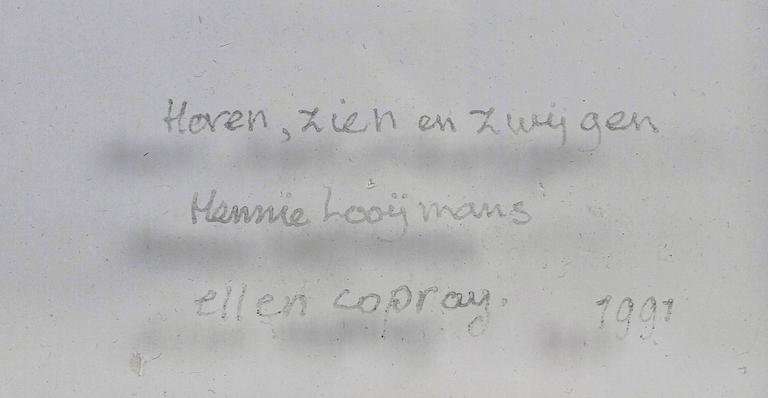 Horen, zien en zwijgen
Hennie Looijmans
ellen copray. 1991